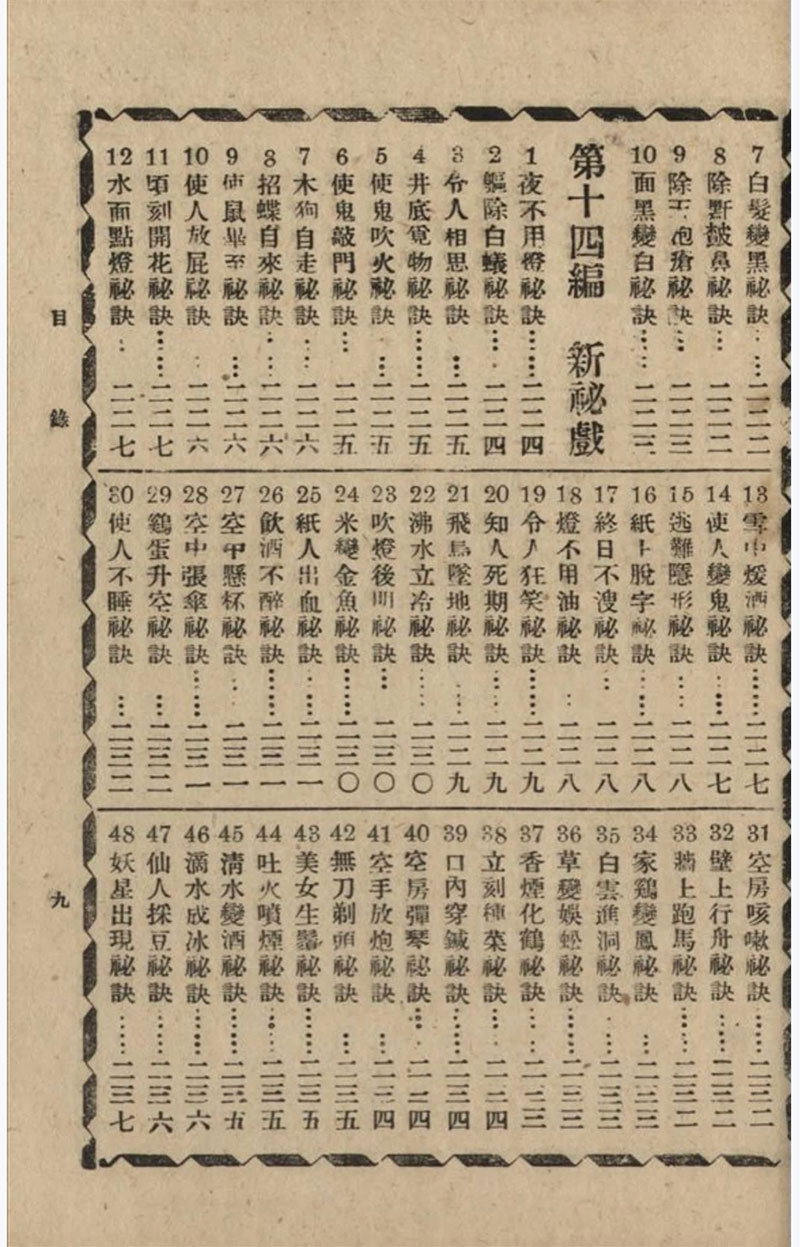 7 白髮變黑祕訣……二二二
8 除野皶鼻祕訣……二二二
9 除玉疱瘡祕訣……二二三
10 面黑變白祕訣……二二三
第十四編 新祕戲
1 夜不用燈祕訣……二二四
2 驅除白蟻祕訣……二二四
3 令人相思祕訣……二二五
4 井底覓物祕訣……二二五
5 使鬼吹火祕訣……二二五
6 使鬼敲門祕訣……二二五
7 木狗自走祕訣……二二六
8 招蝶自來祕訣……二二六
9 使鼠畢至祕訣……二二六
10 使人放屁祕訣……二二六
11 頃刻開花祕訣……二二七
12 水面點燈祕訣……二二七
13 雪中煖酒祕訣……二二七
14 使人變鬼祕訣……二二七
15 逃難隱形祕訣……二二八
16 紙上脫字祕訣……二二八
17 終日不溲祕訣……二二八
18 燈不用油祕訣……二二八
19 令人狂笑祕訣……二二九
20 知人死期祕訣……二二九
21 飛鳥墜地祕訣……二二九
22 沸水立冷祕訣……二三〇
23 吹燈後明祕訣……二三〇
24 米變金魚祕訣……二三〇
25 紙人出血祕訣……二三一
26 飲酒不醉祕訣……二三一
27 空中懸杯祕訣……二三一
28 空中張傘祕訣……二三一
29 鷄蛋升空祕訣……二三二
30 使人不睡祕訣……二三二
31 空房咳嗽祕訣……二三二
32 壁上行舟祕訣……二三二
33 牆上跑馬祕訣……二三二
34 家鷄變鳳祕訣……二三三
35 白雲進洞祕訣……二三三
36 草變蜈蚣祕訣……二三三
37 香煙化鶴祕訣……二三三
38 立刻種菜祕訣……二三四
39 口內穿鍼祕訣……二三四
40 空房彈琴祕訣……二三四
41 空手放炮祕訣……二三四
42 無刀剃頭祕訣……二三五
43 美女生鬚祕訣……二三五
44 吐火噴煙祕訣……二三五
45 清水變酒祕訣……二三五
46 滴水成冰祕訣……二三六
47 仙人採豆祕訣……二三六
48 妖星出現祕訣……二三七
目錄 九